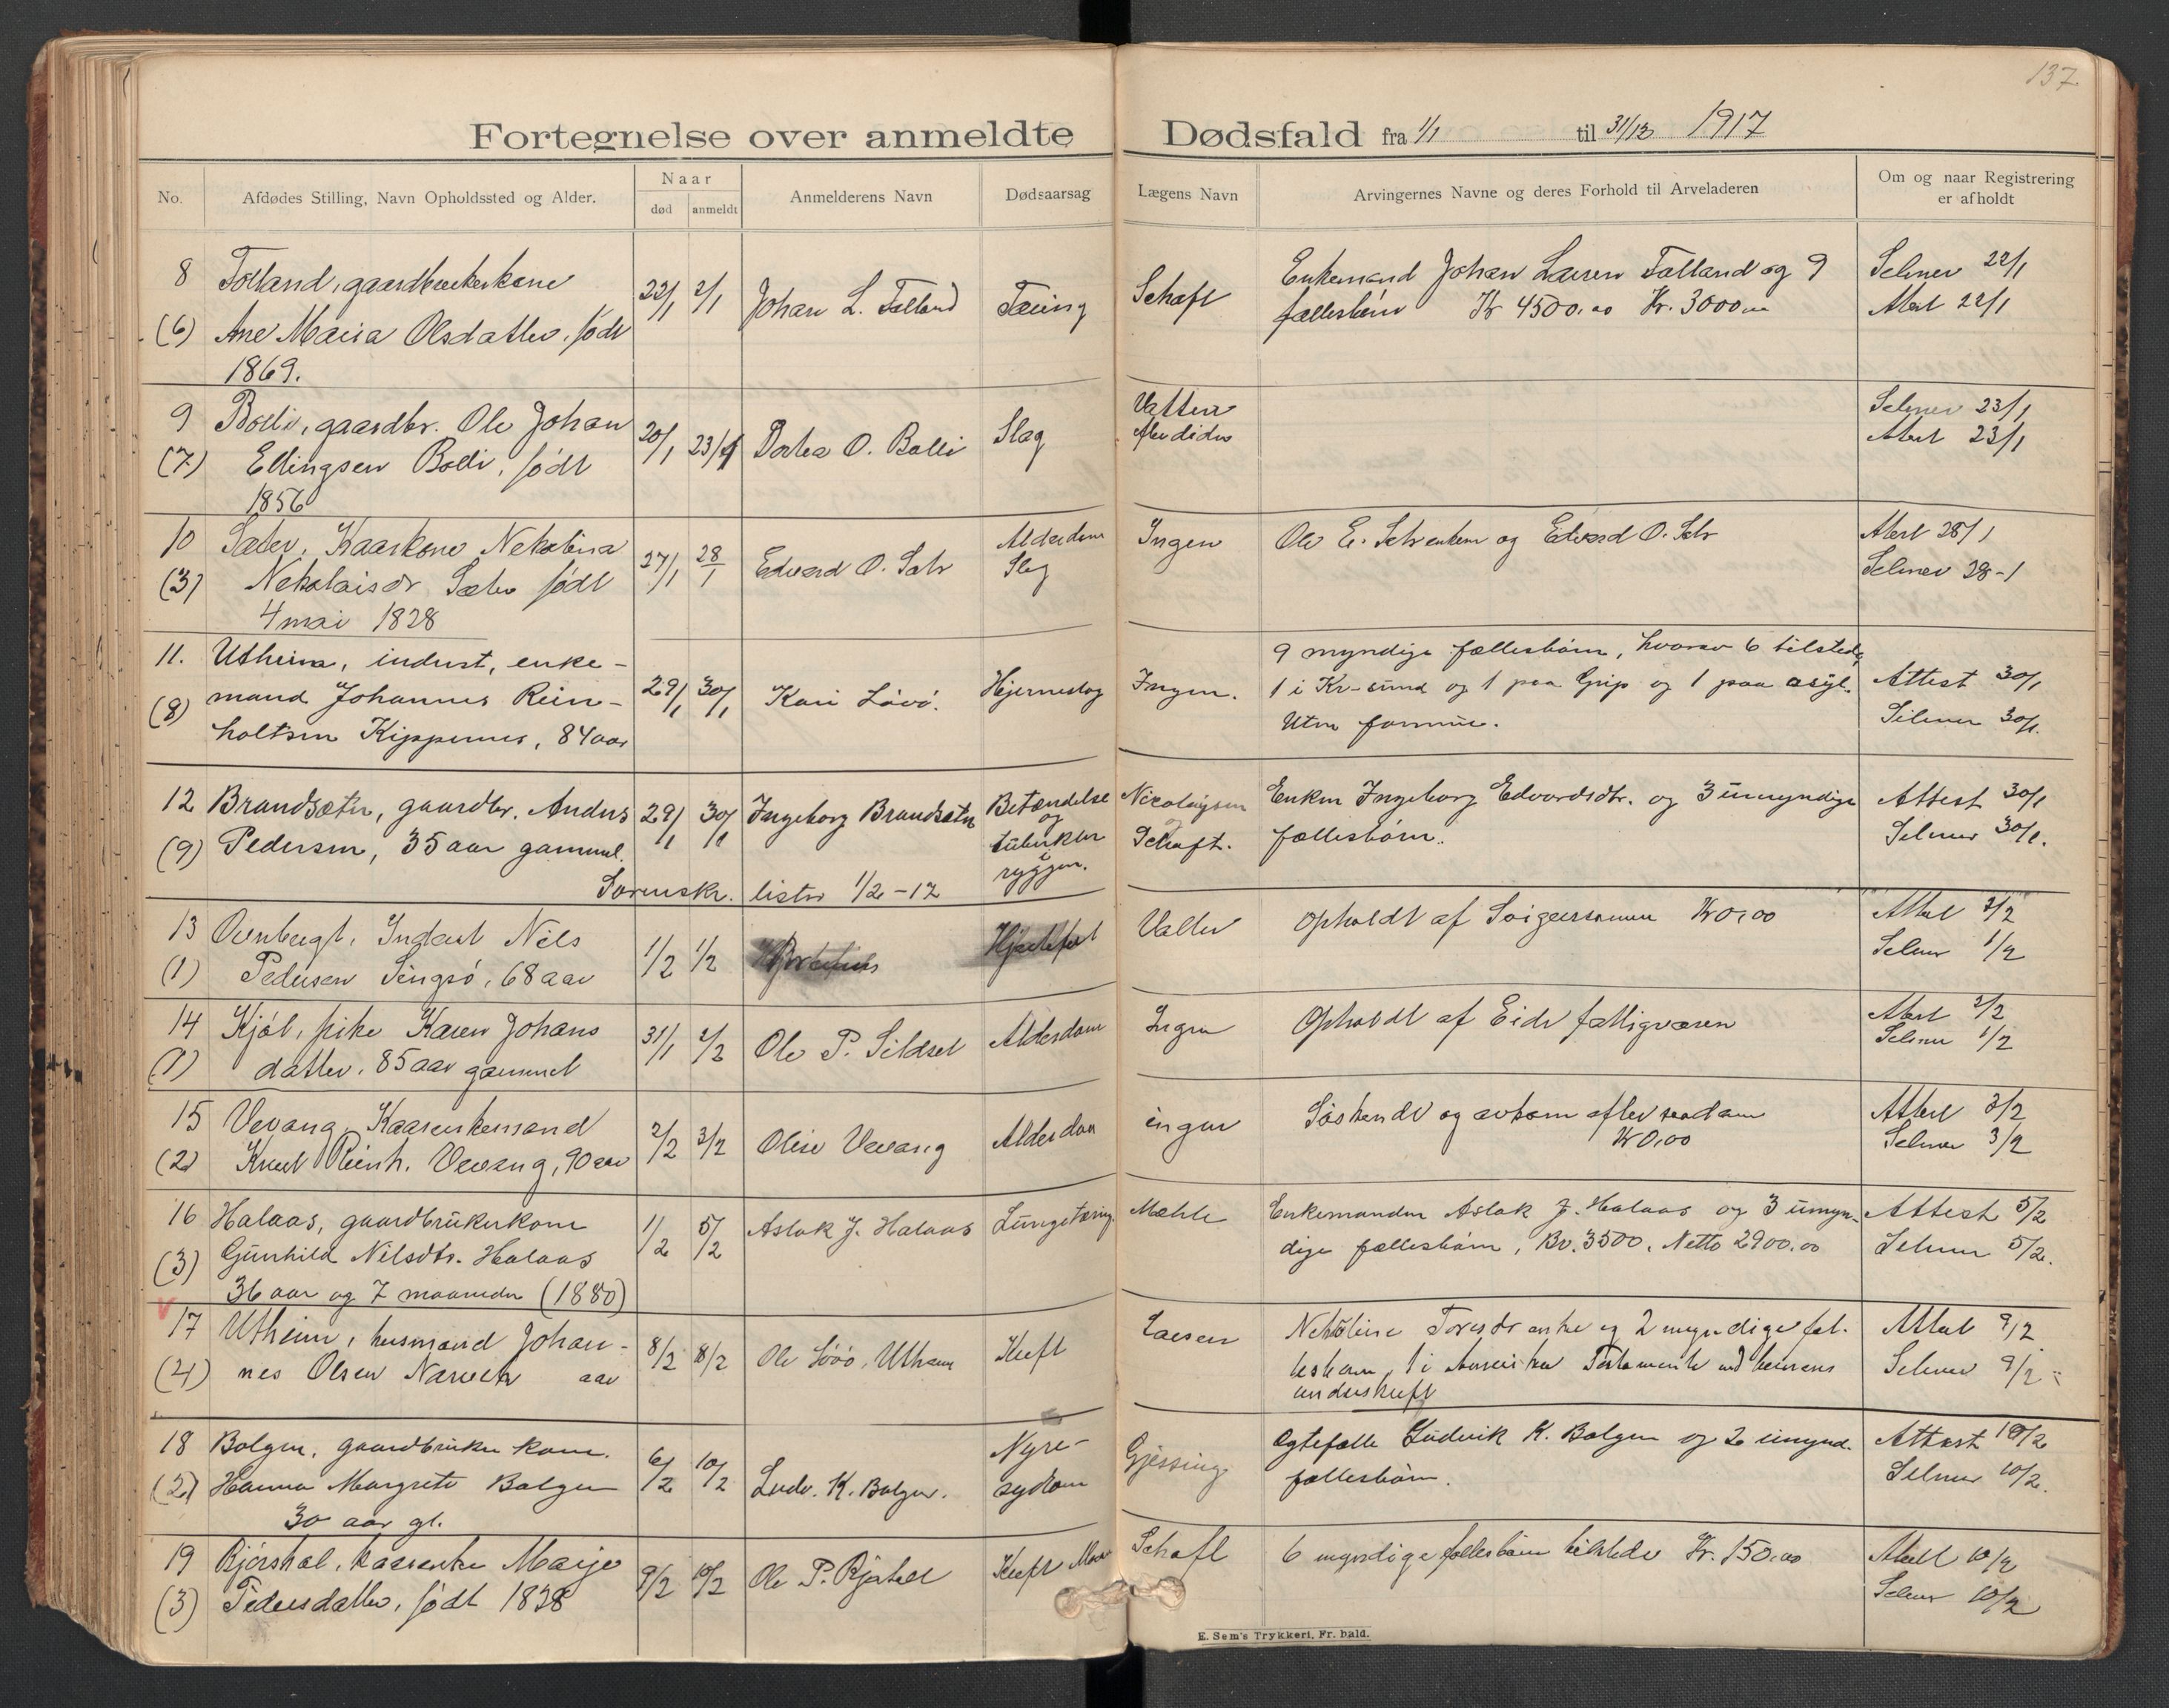 137
Fortegnelse over anmeldte Dødsfald fra 1/1 til 31/12 1917
No.
Afdødes Stilling, Navn Opholdssted og Alder.
Naar
død
anmeldt
Anmelderens Navn
Dødsaarsag
Lægens Navn
Arvingernes Navne og deres Forhold til Arveladeren
Om og naar Registrering
er afholdt
8
(6)
Folland, gaardbrukerkone
Ane Maria Olsdatter, født
1869.
22/1
2/1
Johan L. Folland
Tæring
Schaft
Enkemand Johan Larsen Folland og 9
fællesbørn Kr 4500.00 Kr. 3000.00
Selmer 22/1
Attest 22/1
9
(7)
Bolli, gaardbr. Ole Johan
Ellingsen Bolli, født
1856
20/1
23/1
Dortea O. Bolli
Slag
Selmer 23/1
Attest 23/1
10
(3)
Sæter, Kaarkone Nekolina
Nekolaisdr Sæter født
4 mai 1828
27/1
28/1
Edvard O. Sætr
Alderdom
Slag
Ingen
Ole E. og Edvard O. Sætr
Attest 28/1
Selmer 28-1
11.
(8)
Utheim, inderst, enke-
mand Johannes Rein-
holtsen Kippernes, 84 aar
29/1
30/1
Kari Løvø.
Hjerneslag
Ingen.
9 myndige fællesbørn, hvorav 6 tilstede,
1 i Kr-sund og 1 paa Grip og 1 paa asyl.
Uten formue.
Attest 30/1
Selmer 30/1.
12
(9)
Brandsætr, gaardbr. Anders
Pedersen, 35 aar gammel.
29/1
30/1
Ingeborg Brandsætr
Betændelse
og
tuberkler
i
ryggen.
Nicolaysen
og
Schaft.
Enken Ingeborg Edvardsdtr. og 3 umyndige
fællesbørn.
Attest 30/1
Selmer 30/1.
Sorenskr. lister 1/2-17
13
(1)
Nils
Pedersen Singsø, 68 aar
1/2
1/2
Hjertefeil
Opholdt af Svigersønnen Kr 0,00
Attest 1/2
Selmer 1/2
14
(1)
Kjøl, pike Karen Johans
datter, 85 aar gammel
31/1
2/2
Ole P. Sildset
Alderdom
Ingen
Opholdt af Eide fattigvæsen
Attest 2/2
Selmer 1/2
15
(2)
Vevang, Kaarenkemand
Knut Reinh. Vevang, 90 aar
2/2
3/2
Oline Vevang
Alderdom
ingen
Søskende og avkom efter saadan
Kr 0,00
Attest 3/2
Selmer 3/2
16
(3)
Halaas, gaardbrukerkone
Gunhild Nilsdtr. Halaas
36 aar og 7 maaneder (1880)
1/2
5/2
Aslak J. Halaas
Lungetæring.
Mæhle
Enkemanden Aslak J. Halaas og 3 umyn-
dige fællesbørn, Br. 3500. Netto 2900.00
Attest 5/2
Selmer 5/2.
V
17
(4)
Utheim, husmand Johan-
nes Olsen Narvik aar
8/2
8/2
Ole Løvø, Utheim
Kræft
Larsen
Nekoline Toresdr enke og 2 myndige fæl-
lesbørn, 1 i Amerika Testamente
underskrift
Attest 9/2
Selmer 9/2
18
(2)
Bolgen, gaardbruker kone.
Hanna Margrete Bolgen
30 aar gl.
6/2
10/2
Ludv. K. Bolgen.
Nyre-
sydom
Gjessing
Egtefælle Ludvik K. Bolgen og 2 umynd.
fællesbørn.
Attest 10/2
Selmer 10/2.
19
(3)
kaarenke Marje
Pedersdatter, født 1838
9/2
10/2
Ole P.
Kræft
Schaft
6 myndige fællesbørn tilstede Kr. 150.00
Attest 10/2
Selmer 10/2
E. Sem's Trykkeri, Fr.hald.